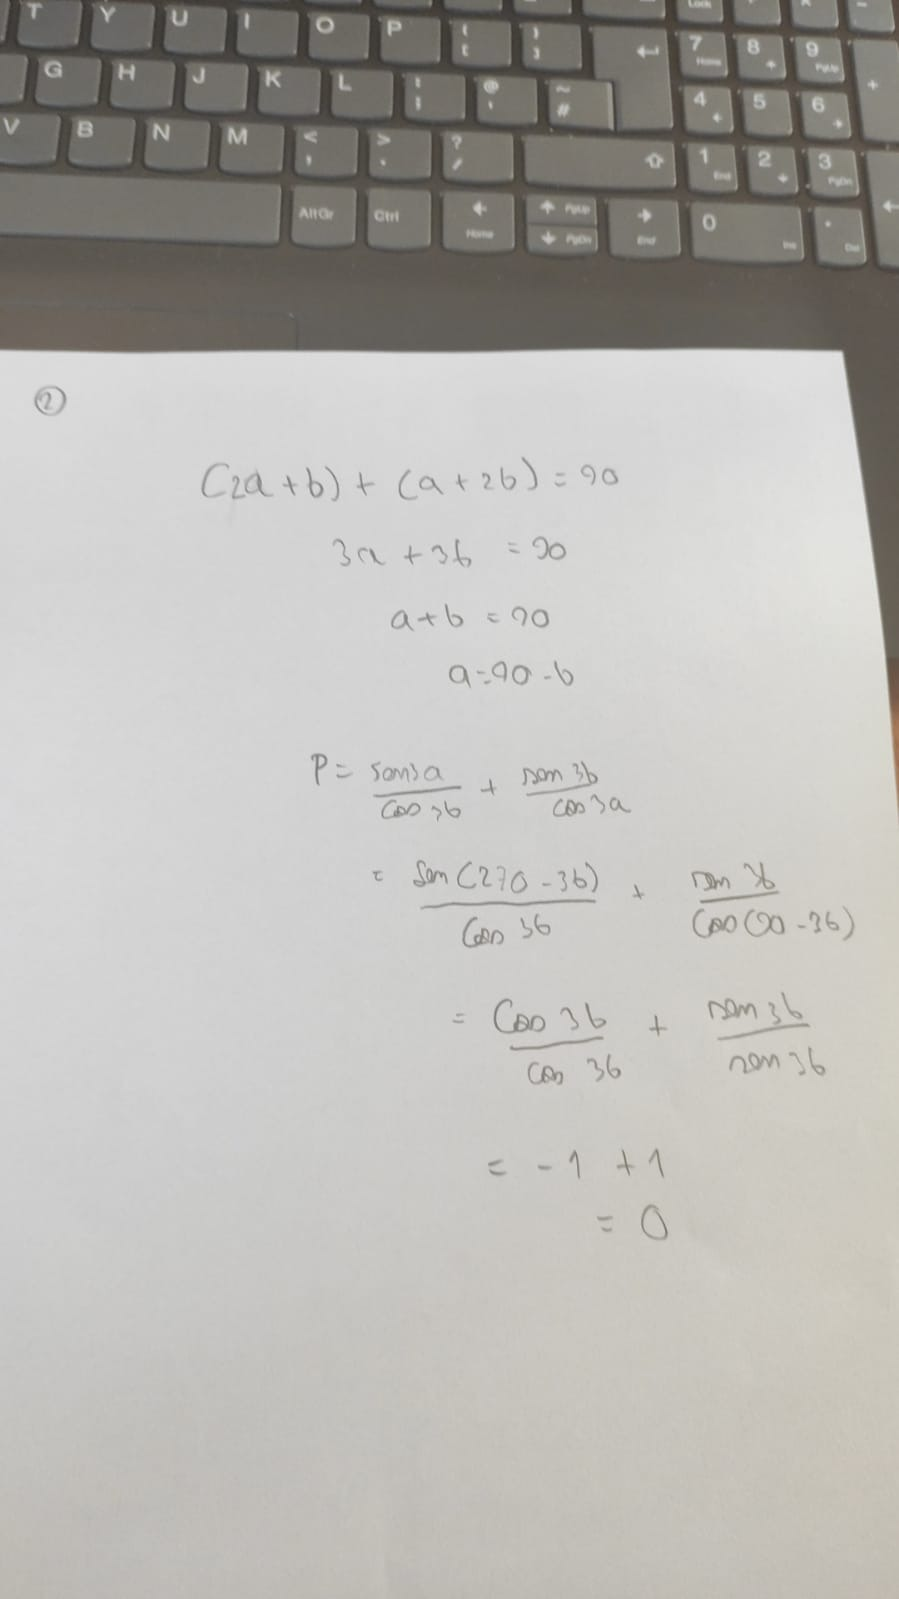 T Y U I O P { [ } ] Lock
G H J K L : ; @ ' ~ # 7 Home 8 9 PgUp +
V B N M < , > . ? / 4 5 6
AltGr Ctrl Home PgUp PgDn End 1 End 2 3 PgDn
0 Ins . Del
②
(2a+b) + (a+2b) = 90
3a + 3b = 90
a+b = 90
a=90-b
P = sen3a / cos 3b + sen 3b / cos 3a
= sen (270 - 3b) / cos 3b + sen 3b / cos (90 - 3b)
= cos 3b / cos 3b + sen 3b / sen 3b
= -1 +1
= 0